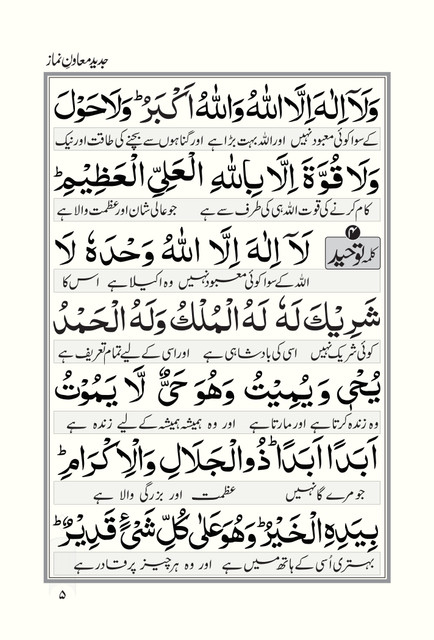 جدید معاون نماز
وَلَآ اِلٰهَ اِلَّا اللّٰهُ وَاللّٰهُ اَكْبَرُ ؕ وَلَا حَوْلَ
کے سوا کوئی معبود نہیں اور اللہ بہت بڑا ہے اور گناہوں سے بچنے کی طاقت اور نیک
وَلَا قُوَّةَ اِلَّا بِاللّٰهِ الْعَلِیِّ الْعَظِیْمِ ؕ
کام کرنے کی قوت اللہ ہی کی طرف سے ہے جو عالی شان اور عظمت والا ہے
۴ کلمہ توحید لَآ اِلٰهَ اِلَّا اللّٰهُ وَحْدَهٗ لَا
اللہ کے سوا کوئی معبود نہیں وہ اکیلا ہے اس کا
شَرِیْكَ لَهٗ لَهُ الْمُلْكُ وَلَهُ الْحَمْدُ
کوئی شریک نہیں اسی کی بادشاہی ہے اور اسی کے لیے تمام تعریف ہے
یُحْیٖ وَیُمِیْتُ وَهُوَ حَیٌّ لَّا یَمُوْتُ
وہ زندہ کرتا ہے اور مارتا ہے اور وہ ہمیشہ ہمیشہ کے لیے زندہ ہے
اَبَدًا اَبَدًا ؕ ذُو الْجَلَالِ وَالْاِكْرَامِ ؕ
جو مرے گا نہیں عظمت اور بزرگی والا ہے
بِیَدِهِ الْخَیْرُ ؕ وَهُوَ عَلٰی كُلِّ شَیْءٍ قَدِیْرٌ ؕ
بہتری اُسی کے ہاتھ میں ہے اور وہ ہر چیز پر قادر ہے
۵